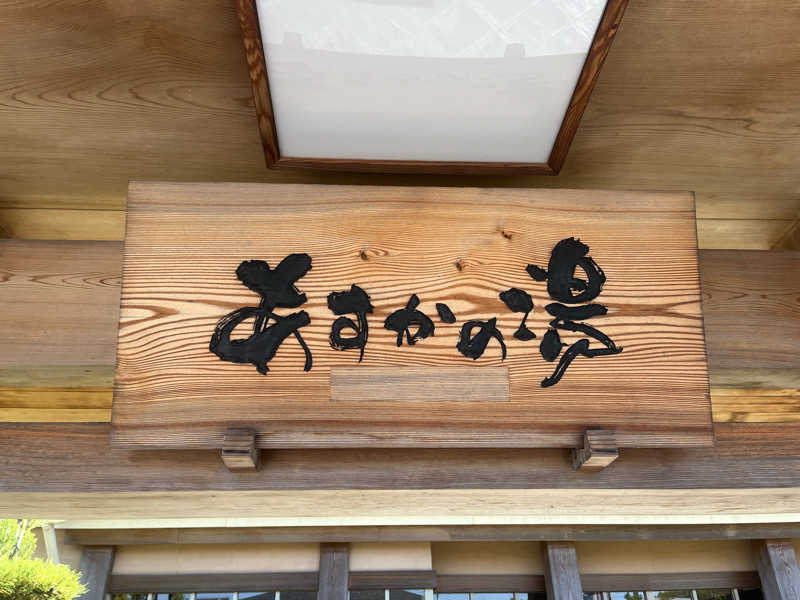 あすかの湯